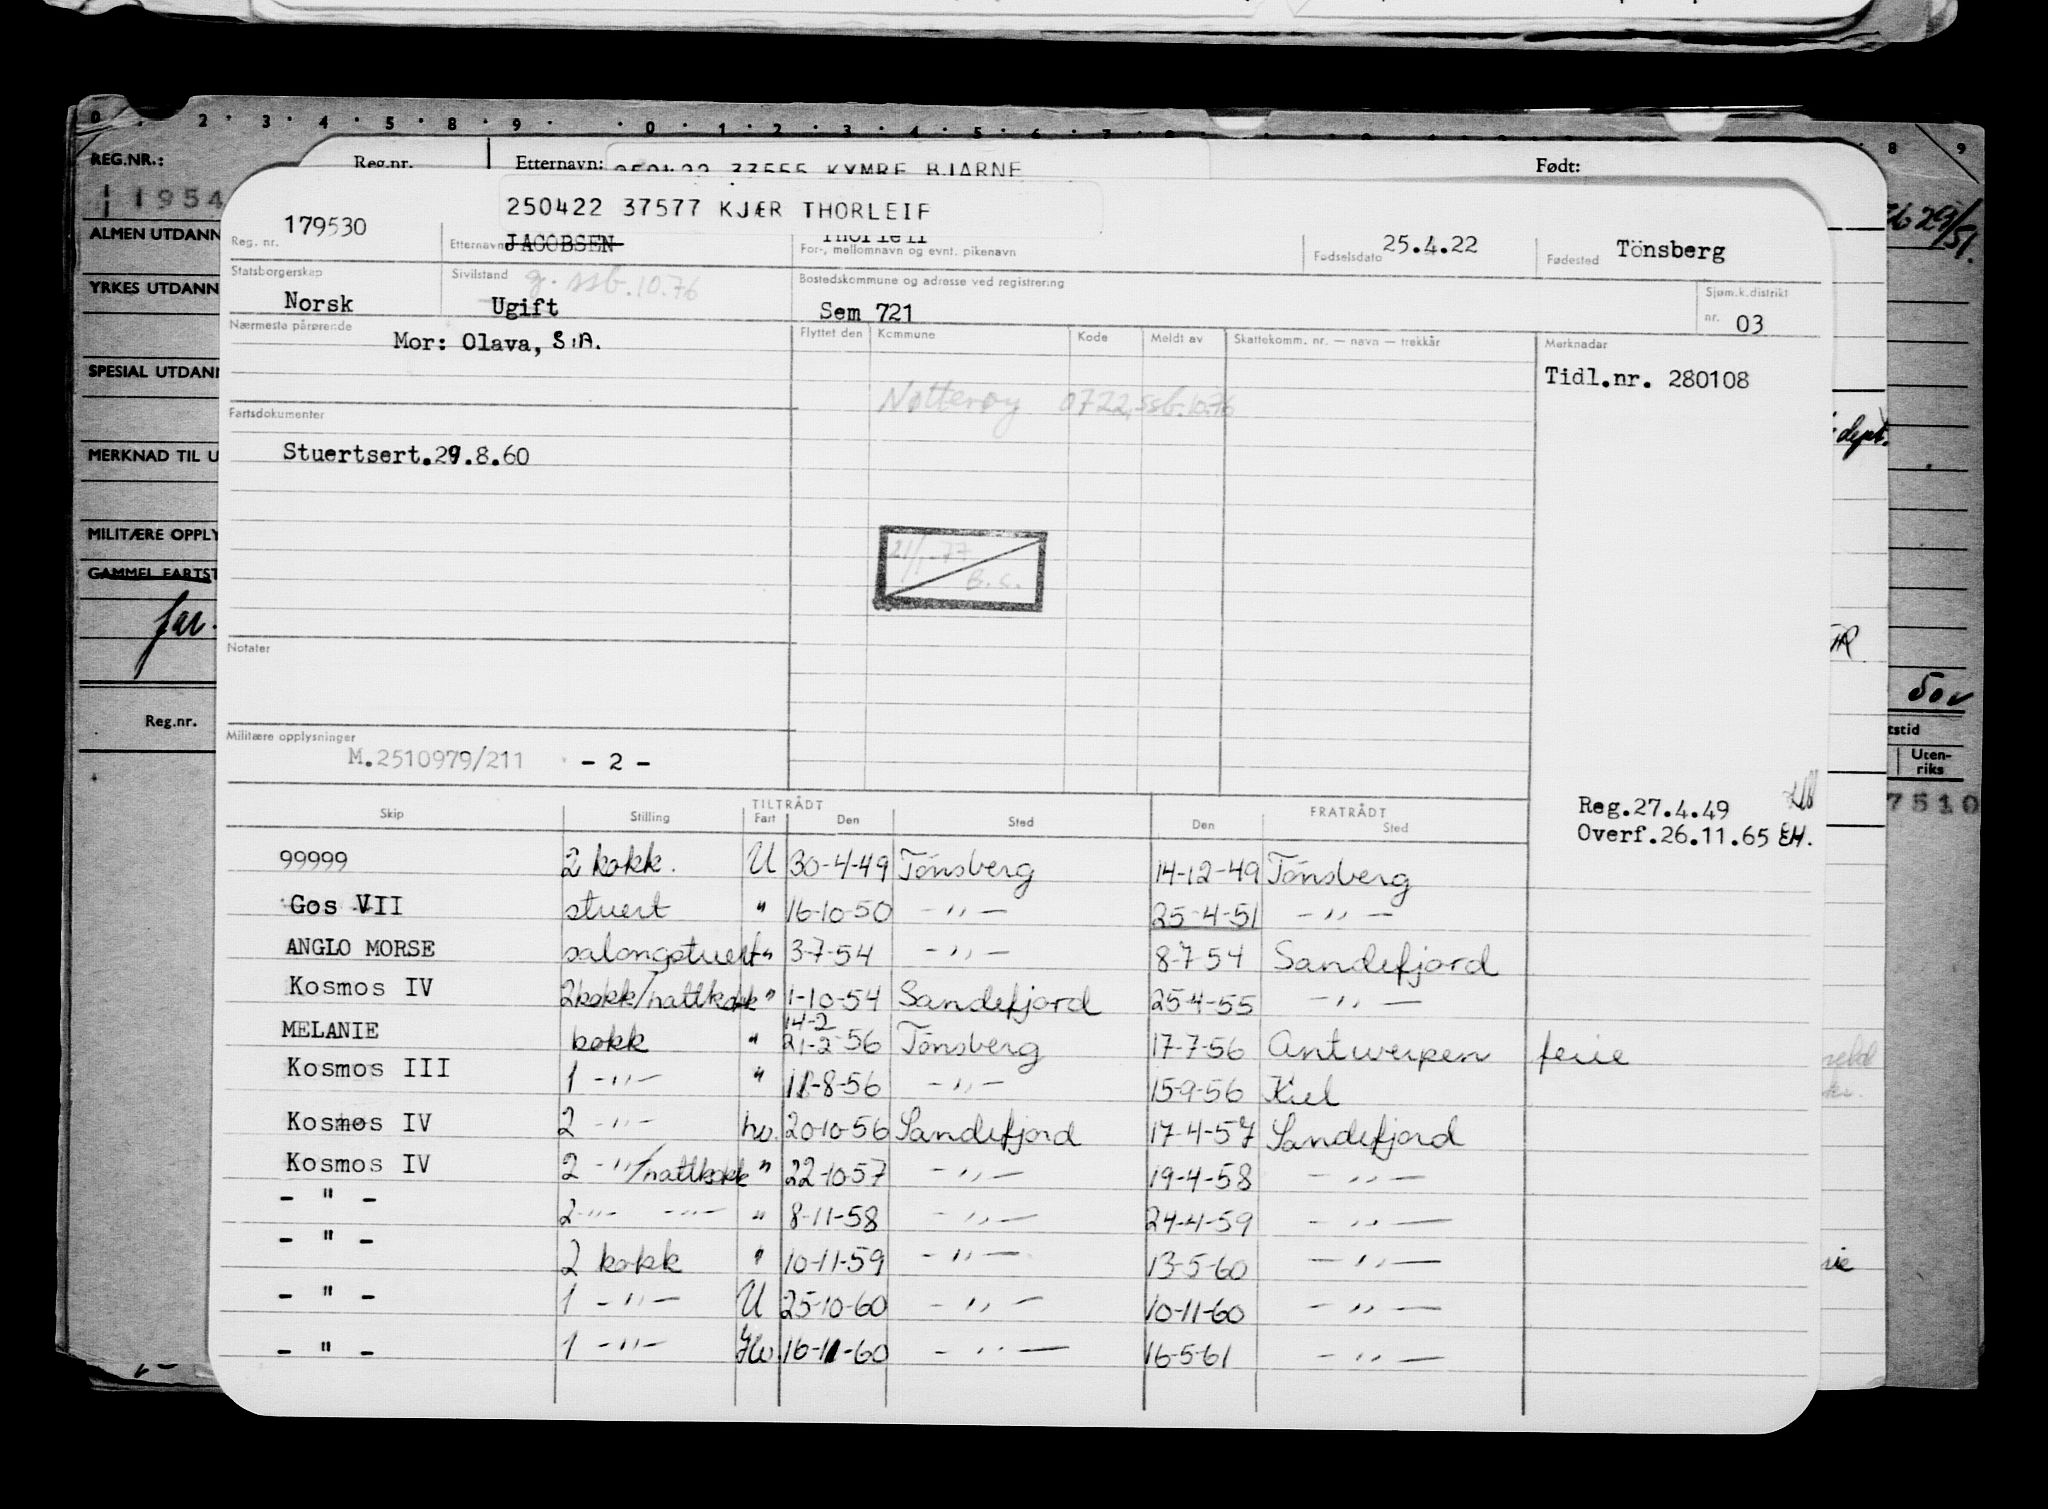 0 . 2 . 3 . 4 . 5 . 8 . 9 . . 0 . 1 . 2 . 3 . 4 . 5 . 6 . 7 8 9
REG.NR.: Reg.nr. Etternavn: 250422 33555 KYMRE BJARNE Født:
1954
ALMEN UTDANN
YRKES UTDANN
SPESIAL UTDANN
MERKNAD TIL U
MILITÆRE OPPLY
GAMMEL FARTST
far.
Reg.nr.
29/51.
dept.
50
tstid
Uten-
riks
7510
250422 37577 KJÆR THORLEIF
Reg. nr. 179530 Etternavn JACOBSEN Thorleif For-, mellomnavn og evnt. pikenavn Fødselsdato 25.4.22 Fødested Tönsberg
Statsborgerskap Norsk Sivilstand Ugift g. ssb.10.76 Bostedskommune og adresse ved registrering Sem 721 Sjøm.k.distrikt nr. 03
Nærmeste pårørende Mor: Olava, S.A.
Flyttet den Kommune Kode Meldt av Skattekomm. nr. — navn — trekkår Merknader
Tidl.nr. 280108
Nøtterøy 0722, ssb.10.76
Fartsdokumenter
Stuertsert.29.8.60
21/1-77
B.S.
Notater
Militære opplysninger
M.2510979/211 - 2 -
Reg.27.4.49
Overf.26.11.65 EH.
TILTRÅDT FRATRÅDT
Skip Stilling Fart Den Sted Den Sted
99999 2 kokk. U 30-4-49 Tönsberg 14-12-49 Tönsberg
Gos VII stuert " 16-10-50 - ,, - 25-4-51 - ,, -
ANGLO MORSE salongstuert " 3-7-54 - ,, - 8-7-54 Sandefjord
Kosmos IV 2kokk/nattkokk " 1-10-54 Sandefjord 25-4-55 - ,, -
14-2
MELANIE kokk " 21-2-56 Tönsberg 17-7-56 Antwerpen ferie
Kosmos III 1 - ,, - " 11-8-56 - ,, - 15-9-56 Kiel
Kosmos IV 2 - ,, - hv. 20-10-56 Sandefjord 17-4-57 Sandefjord
Kosmos IV 2 - ,, -/nattkokk " 22-10-57 - ,, - 19-4-58 - ,, -
- " - 2 - ,, - - ,, - " 8-11-58 - ,, - 24-4-59 - ,, -
- " - 2 kokk " 10-11-59 - ,, - 13-5-60 - ,, -
- " - 1 - ,, - U 25-10-60 - ,, - 10-11-60 - ,, -
- " - 1 - ,, - Hv. 16-11-60 - ,, - 16-5-61 - ,, -